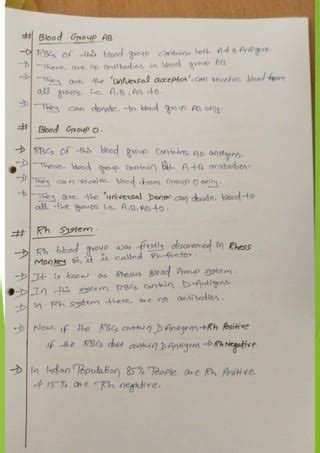 # Blood Group AB
→ RBCs of this blood group contains both A & B Antigens
→ There are no antibodies in blood group AB.
→ They are the 'universal acceptor'. can receive blood from
all groups i.e A,B,AB & O.
→ They can donate to blood group AB only.
# Blood Group O.
→ RBCs of this blood group contains no antigens.
→ These blood group contain both A & B antibodies.
→ They can receive blood from Group O only.
→ They are the 'universal Donor' can donate blood to
all the groups i.e A,B,AB & O.
# Rh System.
→ Rh blood group was firstly discovered in Rhesus
Monkey So, it is called Rh factor.
→ It is know as Rhesus Blood Group system
→ In this system RBCs contain D-Antigens
→ In Rh system there are no antibodies.
→ Now, if the RBCs contain D Antigens → Rh Positive
if the RBCs dont contain D Antigens → Rh Negative
→ In Indian Population 85% People are Rh Positive
& 15% are Rh negative.